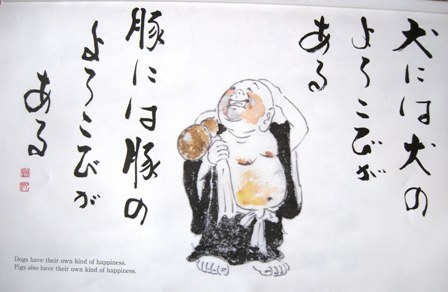 犬には犬の
よろこびが
ある
豚には豚の
よろこびが
ある
Dogs have their own kind of happiness.
Pigs also have their own kind of happiness.